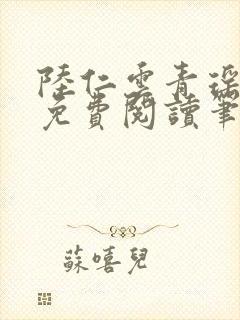 陸仁雲青瑤
免費閱讀筆
蘇嘻兒